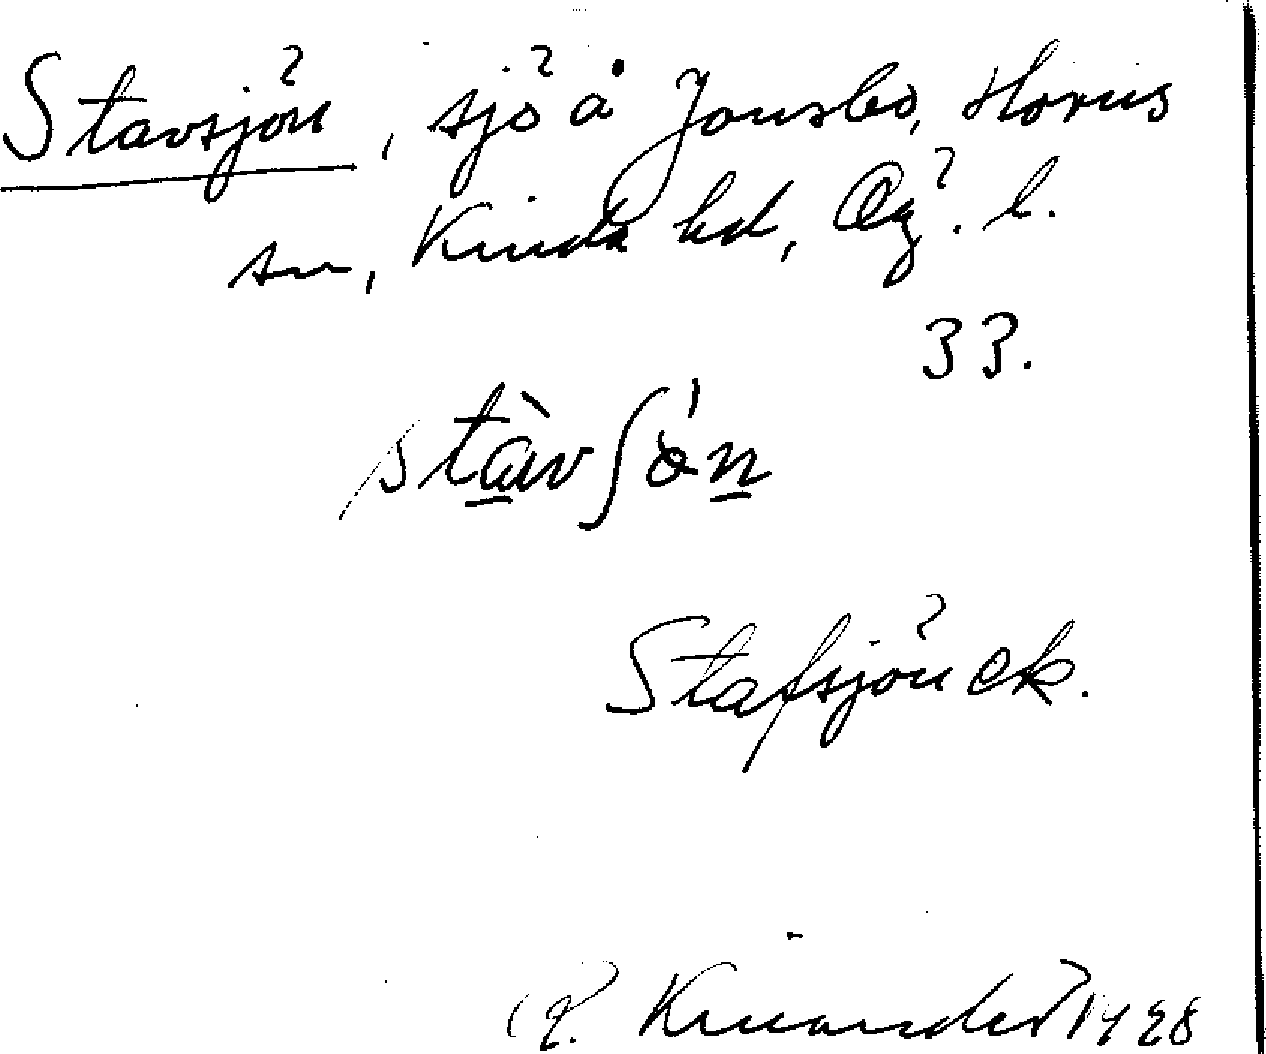 Stavsjön, sjö å Jonsbo, Horns
sn, Kinda hd, Ög. l.
33.
stàvʃǿn
Stafsjön ek.
Kinander 1928